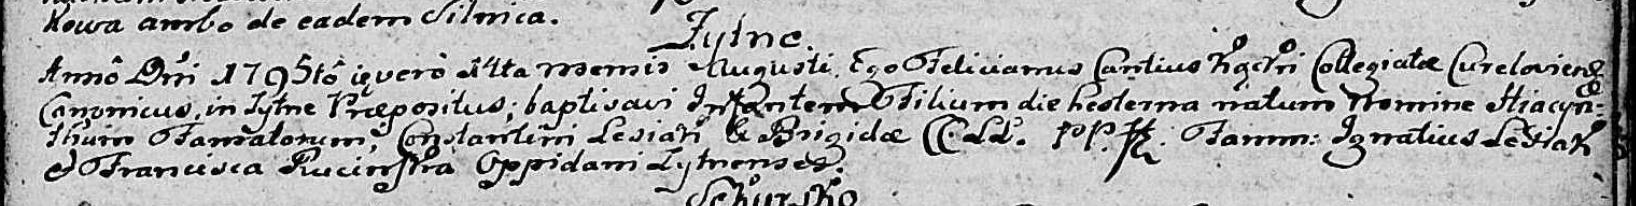 kowa ambo de eadem Silnica.
Żytne.
Anno Dni 1795to id vero 14ta mensis Augusti. Ego Felicianus Cantius Collegiatæ Cureloviens
Canonicus, in Żytne Præpositus; baptisavi Infantem Filium die hesterna natum Nomine Hiacyn-
thum Famatorum, Constantini Lesiak & Brigidæ CC. LL. PP. Ff. Famm: Ignatius Lesiak
& Francisca Rucinska Oppidani Żytnenses.